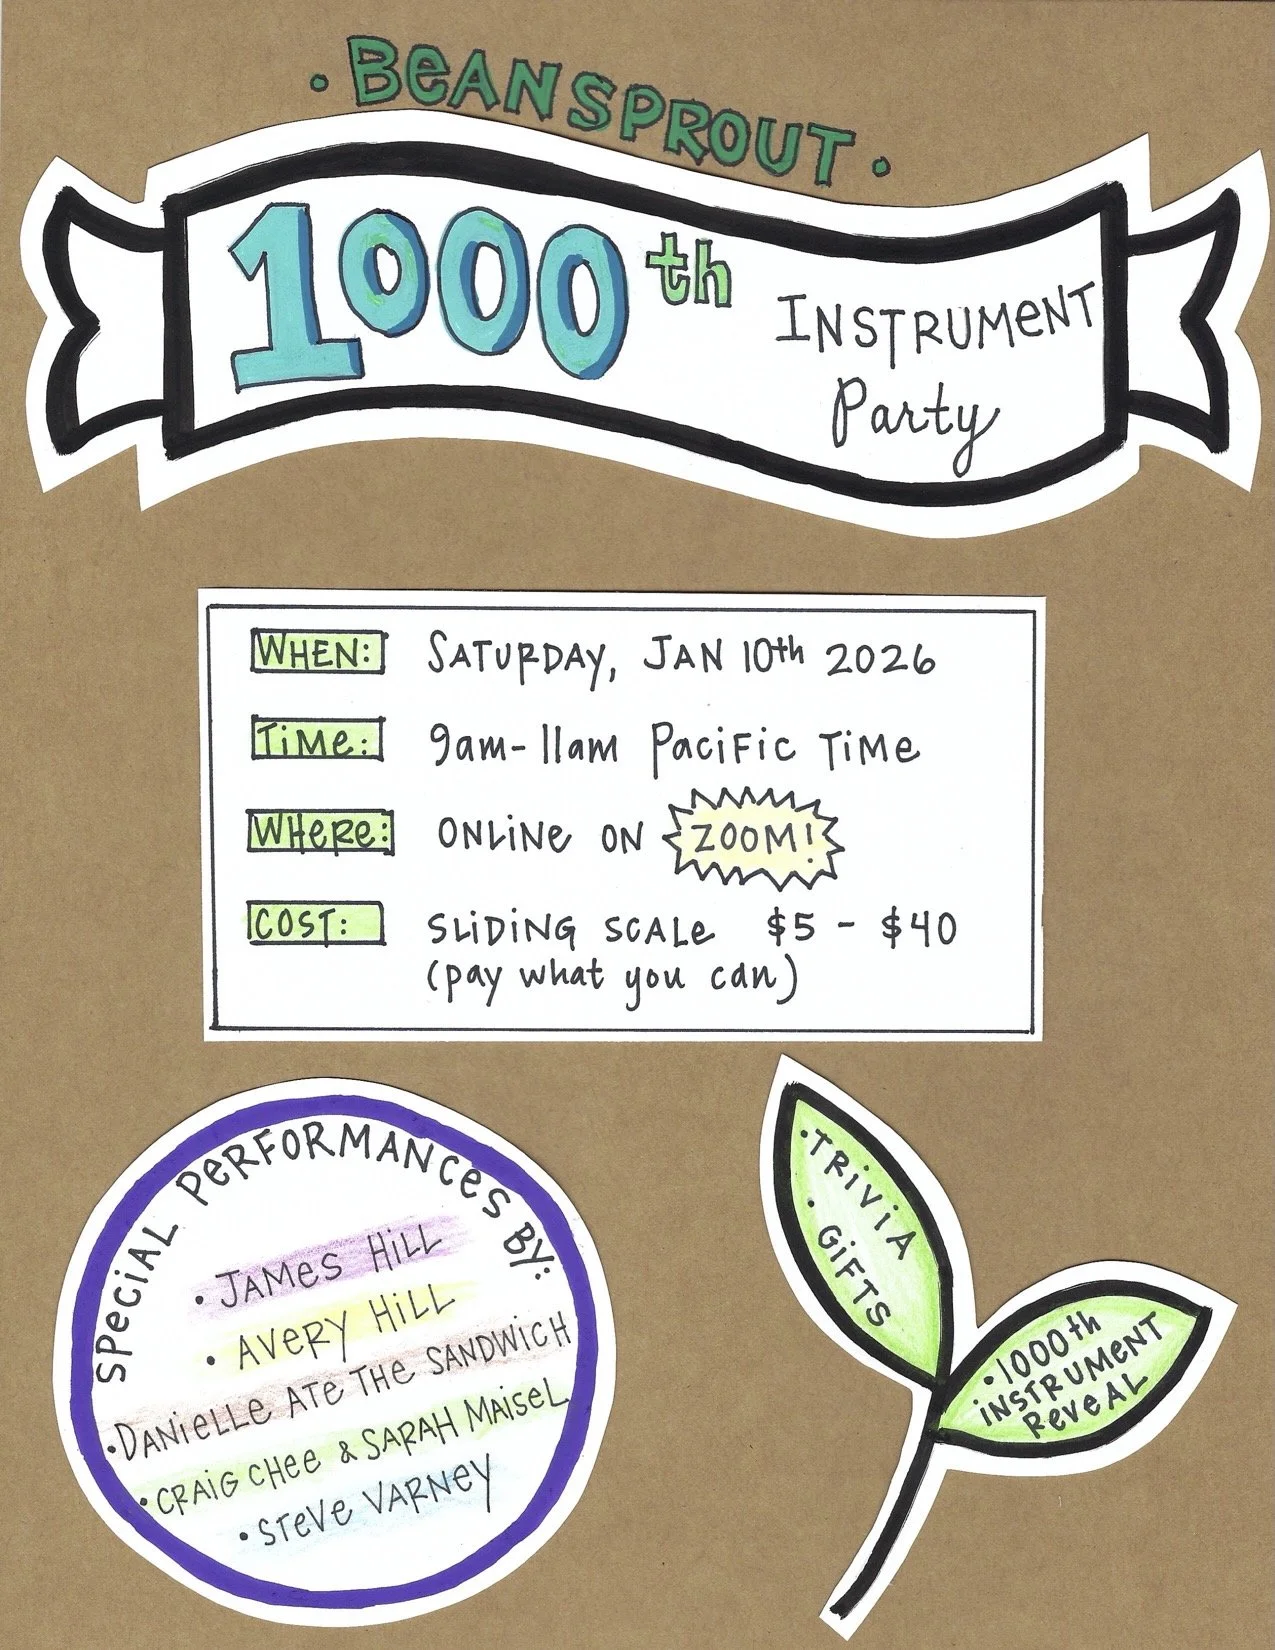 • BeANSPROUT •
1000th INSTRUMeNT
Party
WHEN: SATURDAY, JAN 10th 2026
TiMe: 9am-11am PaciFic TiMe
WHeRe: ONLiNe ON ZOOM!
COST: SLiDiNG SCALe $5 - $40
(pay what you can)
SPeCiAL PeRFORMANCeS BY:
• JAMeS HiLL
• AVeRY HiLL
• DANieLLe ATe THe SANDWiCH
• CRAiG CHee & SARAH MAiSeL
• STeVe VARNeY
• TRiViA
• GiFTS
• 1000th
iNSTRUMeNT
ReVeAL